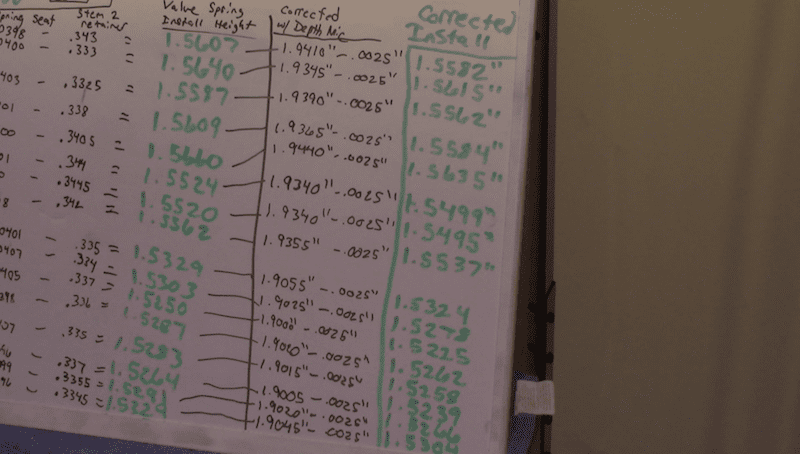 pring Seat Stem 2 retainer Valve Spring Install Height Corrected w/ Depth Mic Corrected Install
0398 - .343 = 1.5607 1.9410" - .0025" 1.5582"
0400 - .333 = 1.5640 1.9345" - .0025" 1.5615"
0403 - .3325 = 1.5587 1.9390" - .0025" 1.5562"
01 - .338 = 1.5609 1.9365" - .0025" 1.5584"
00 - .3405 = 1.5660 1.9440" - .0025" 1.5635"
01 - .344 = 1.5524 1.9340" - .0025" 1.5499"
- .3445 = 1.5520 1.9340" - .0025" 1.5495"
8 - .342 = 1.5562 1.9355" - .0025" 1.5537"
0401 - .335 = 1.5329 1.9055" - .0025" 1.5324
0407 - .334 = 1.5303 1.9025" - .0025" 1.5278
0405 - .337 = 1.5250 1.9000" - .0025" 1.5225
398 - .336 = 1.5287 1.9020" - .0025" 1.5262
407 - .335 = 1.5283 1.9015" - .0025" 1.5258
- .337 = 1.5264 1.9005 - .0025" 1.5239
99 - .3355 = 1.5291 1.9020" - .0025" 1.5266
96 - .3345 = 1.5329 1.9045" - .0025" 1.5304